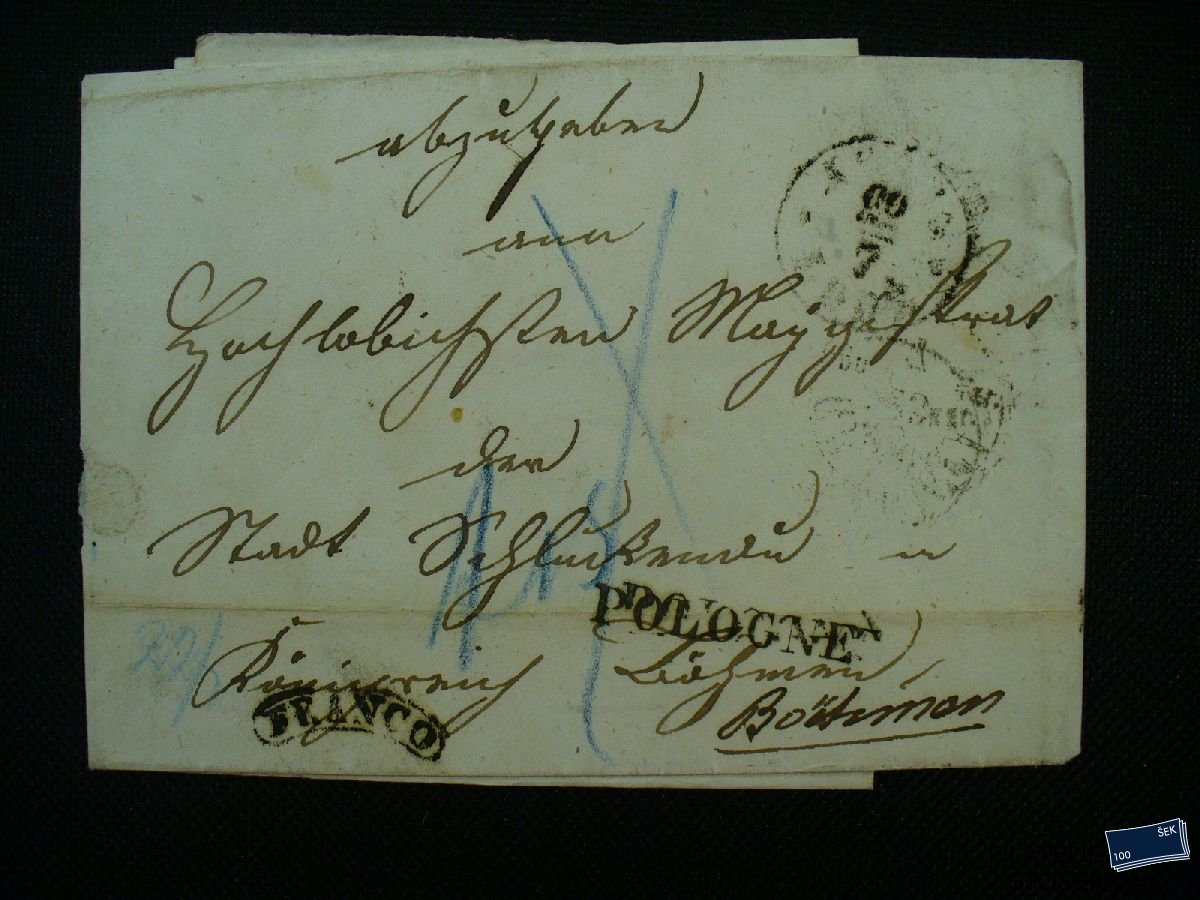 abzugeben
an
Hochlöblichsten Magistrat
der
Stadt Schluckenau in
Königreich Böhmen
Böhmen
POLOGNE
FRANCO
ŠEK
100